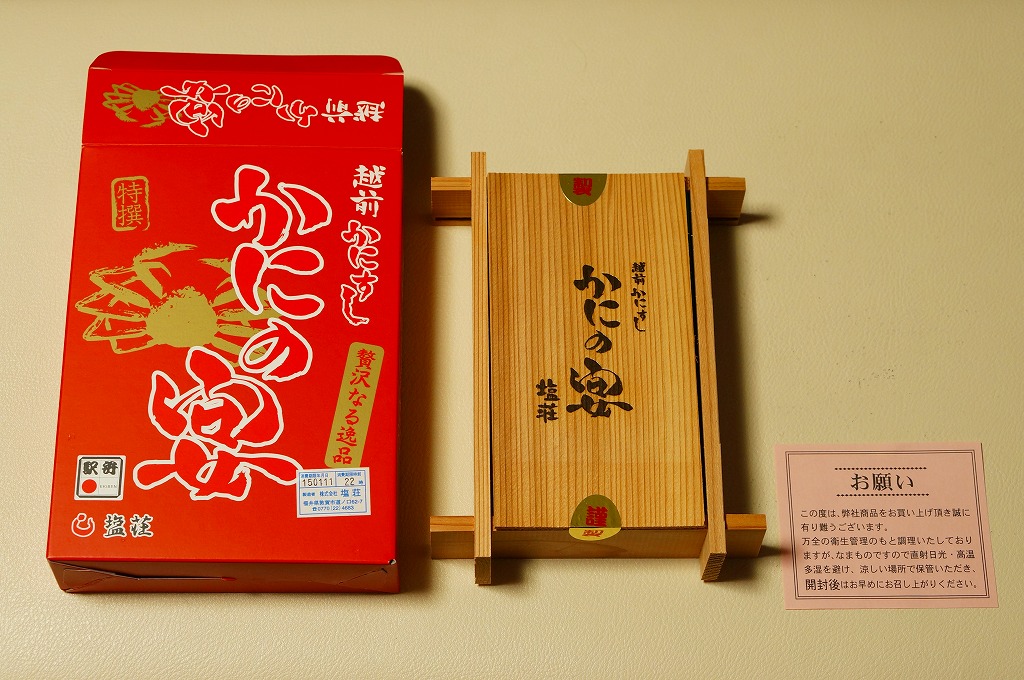 越前かにすし
かにの宴
特撰
越前かにすし
かにの宴
贅沢なる逸品
駅弁
塩荘
消費期限年月日
消費期限時刻
150111
22時
製造者 株式会社 塩荘
福井県敦賀市道ノ口62-7
☎0770(22)4683
謹製
越前かにすし
かにの宴
塩荘
謹製
お願い
この度は、弊社商品をお買い上げ頂き誠に
有り難うございます。
万全の衛生管理のもと調理いたしており
ますが、なまものですので直射日光・高温
多湿を避け、涼しい場所で保管いただき、
開封後はお早めにお召し上がりください。